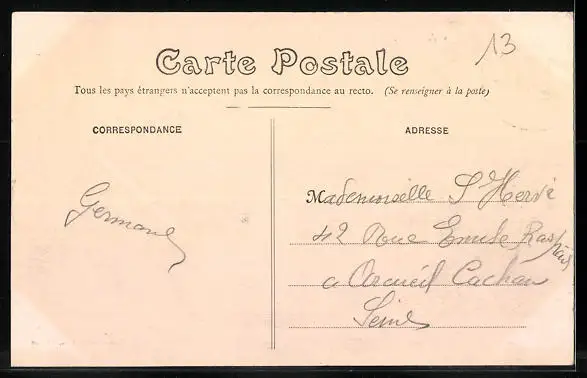 13
Carte Postale
Tous les pays étrangers n'acceptent pas la correspondance au recto. (Se renseigner à la poste)
CORRESPONDANCE
ADRESSE
Germaine
Mademoiselle S Hervé
42 Rue Emile Raspail
a Arcueil Cachan
Seine